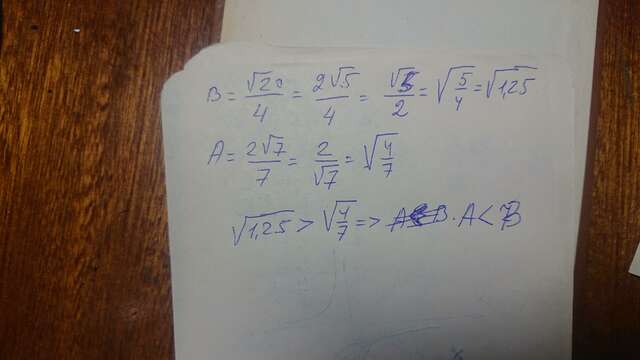 B = √20/4 = 2√5/4 = √5/2 = √(5/4) = √1,25
A = 2√7/7 = 2/√7 = √(4/7)
√1,25 > √(4/7) => A < B